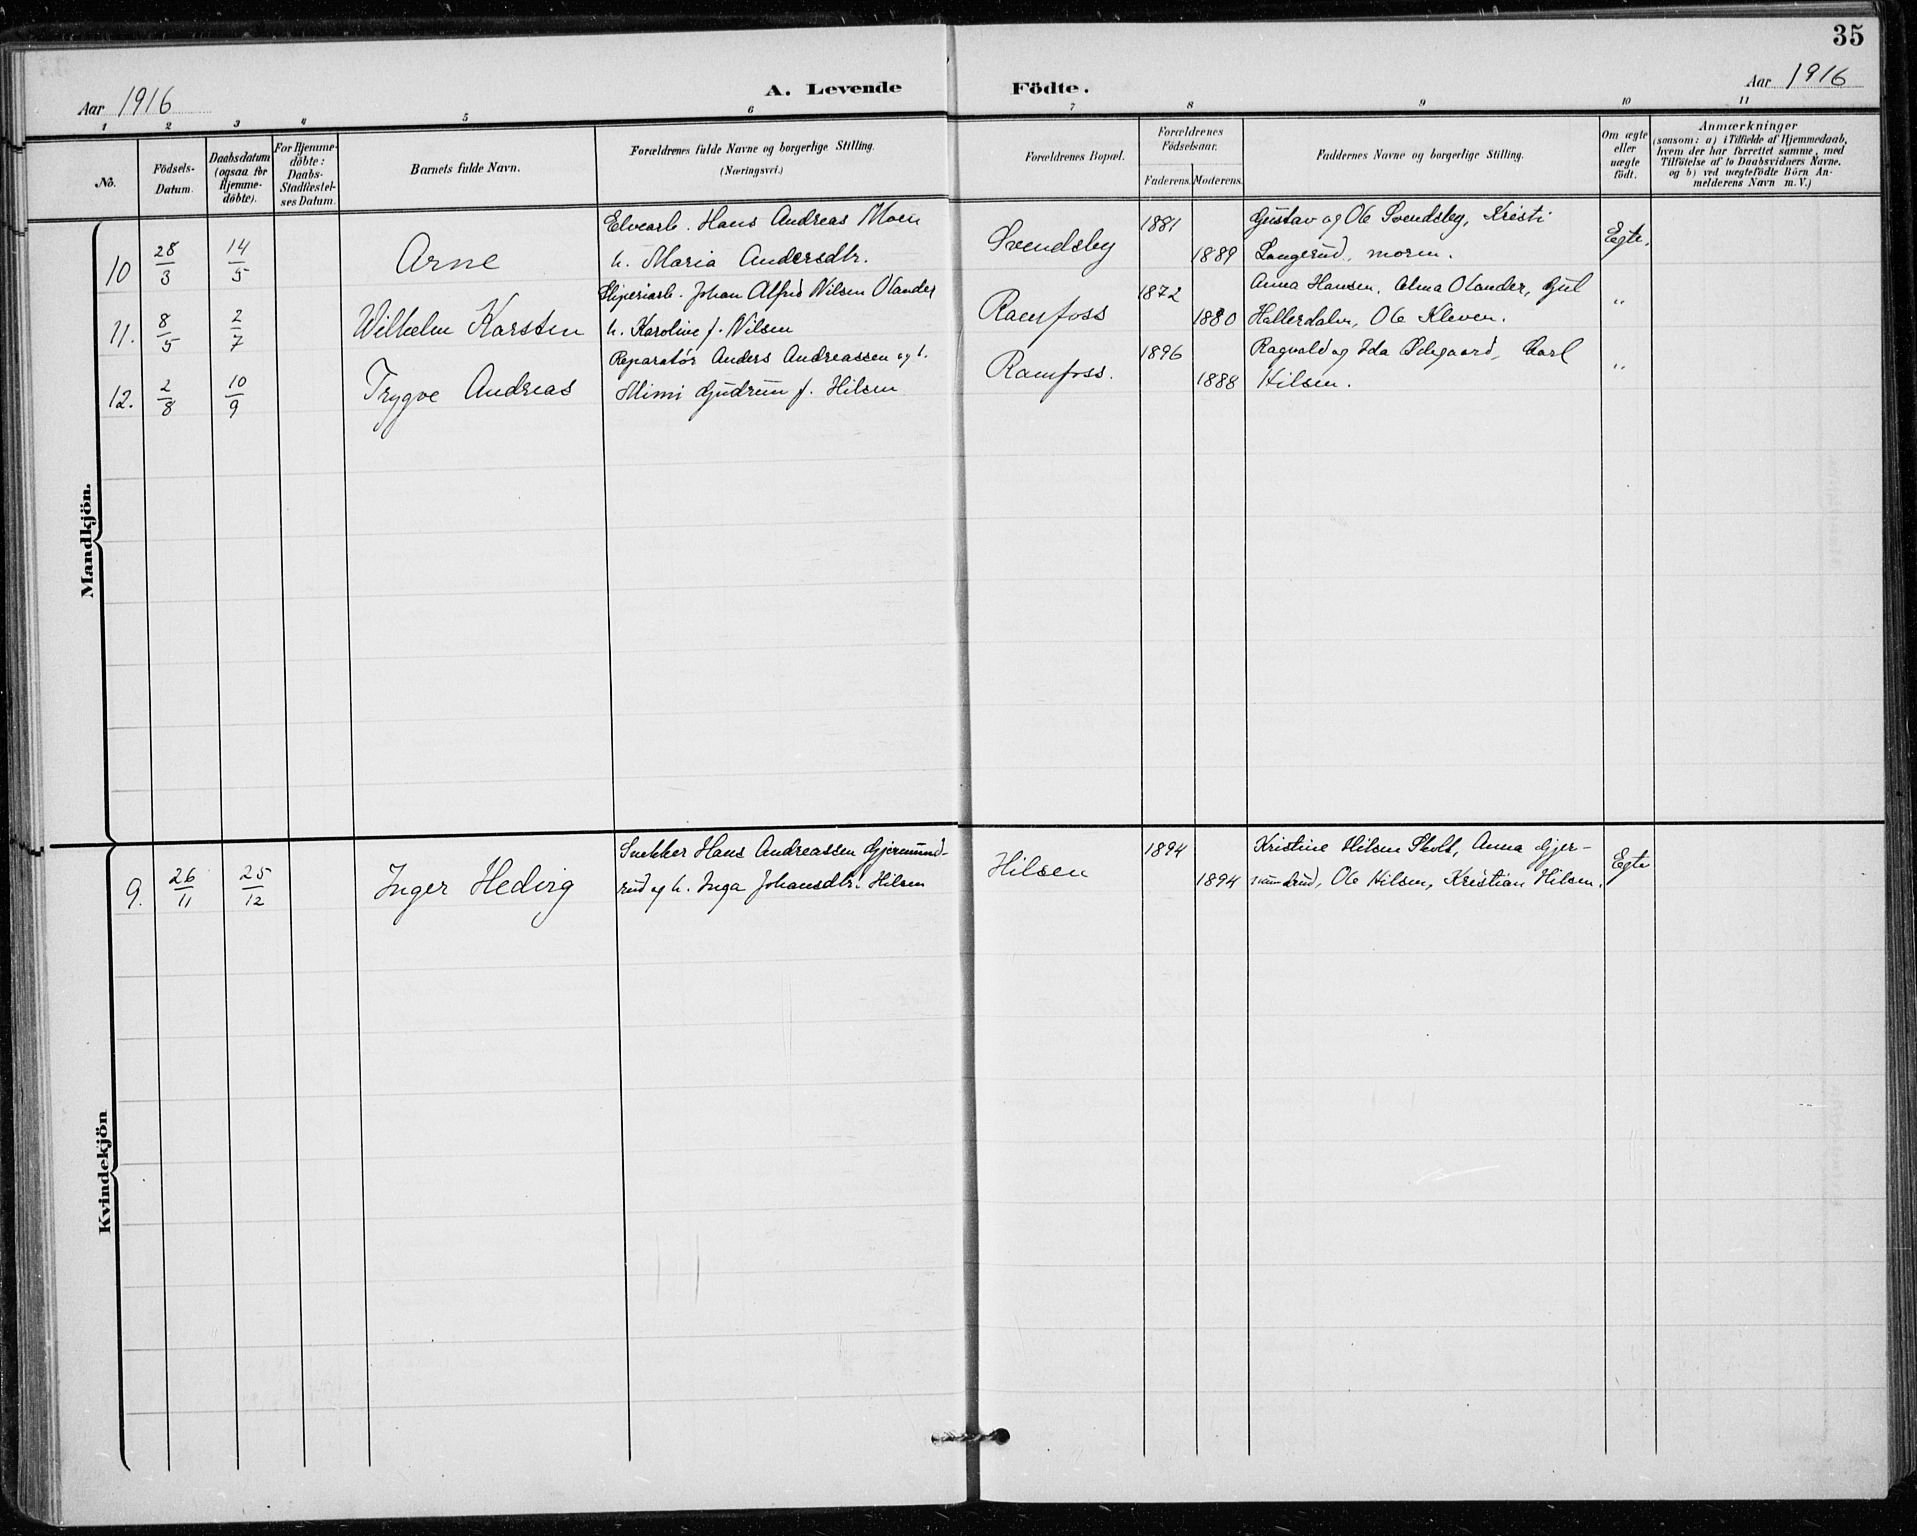 35
Aar 1916
A. Levende Födte.
Aar 1916
1 2 3 4 5 6 7 8 9 10 11
No.
Födsels-
Datum.
Daabsdatum
(ogsaa for
Hjemme-
döbte).
For Hjemme-
döbte:
Daabs-
Stadfæstel-
ses Datum.
Barnets fulde Navn.
Forældrenes fulde Navne og borgerlige Stilling.
(Næringsvei.)
Forældrenes Bopæl.
Forældrenes
Födselsaar.
Faderens. Moderens.
Faddernes Navne og borgerlige Stilling.
Om ægte
eller
uægte
födt.
Anmærkninger
(saasom: a) i Tilfælde af Hjemmedaab,
hvem der har forrettet samme, med
Tilföielse af to Daabsvidners Navne.
og b) ved uægtefödte Börn An-
melderens Navn m. V.)
Mandkjön.
Elvearb. Hans Andreas Moen 1881 Gustav og Ole Svendsby, Kristi
10 28/3 14/5 Arne h. Maria Andersdtr. Svendsby 1889 Langerud, moren. Egte.
Sliperiarb. Johan Alfred Nilsen Olander 1872 Anna Hansen, Alma Olander, Gul
11. 8/5 2/7 Wilhelm Karsten h. Karoline f. Nilsen Ramfoss 1880 Hallerdalen, Ole Kleven. "
Reparatør Anders Andreassen og h. 1896 Ragvald og Ida Ødegaard, Carl
12. 2/8 10/9 Trygve Andreas Mimi Gudrun f. Hilsen Ramfoss. 1888 Hilsen. "
Kvindekjön
Snekker Hans Andreassen Gjermund- 1894 Kristine Hilsen Skolt, Anna Gjer-
9. 26/11 25/12 Inger Hedvig rud og h. Inga Johansdtr. Hilsen Hilsen 1894 mundrud, Ole Hilsen, Kristian Hilsen. Egte